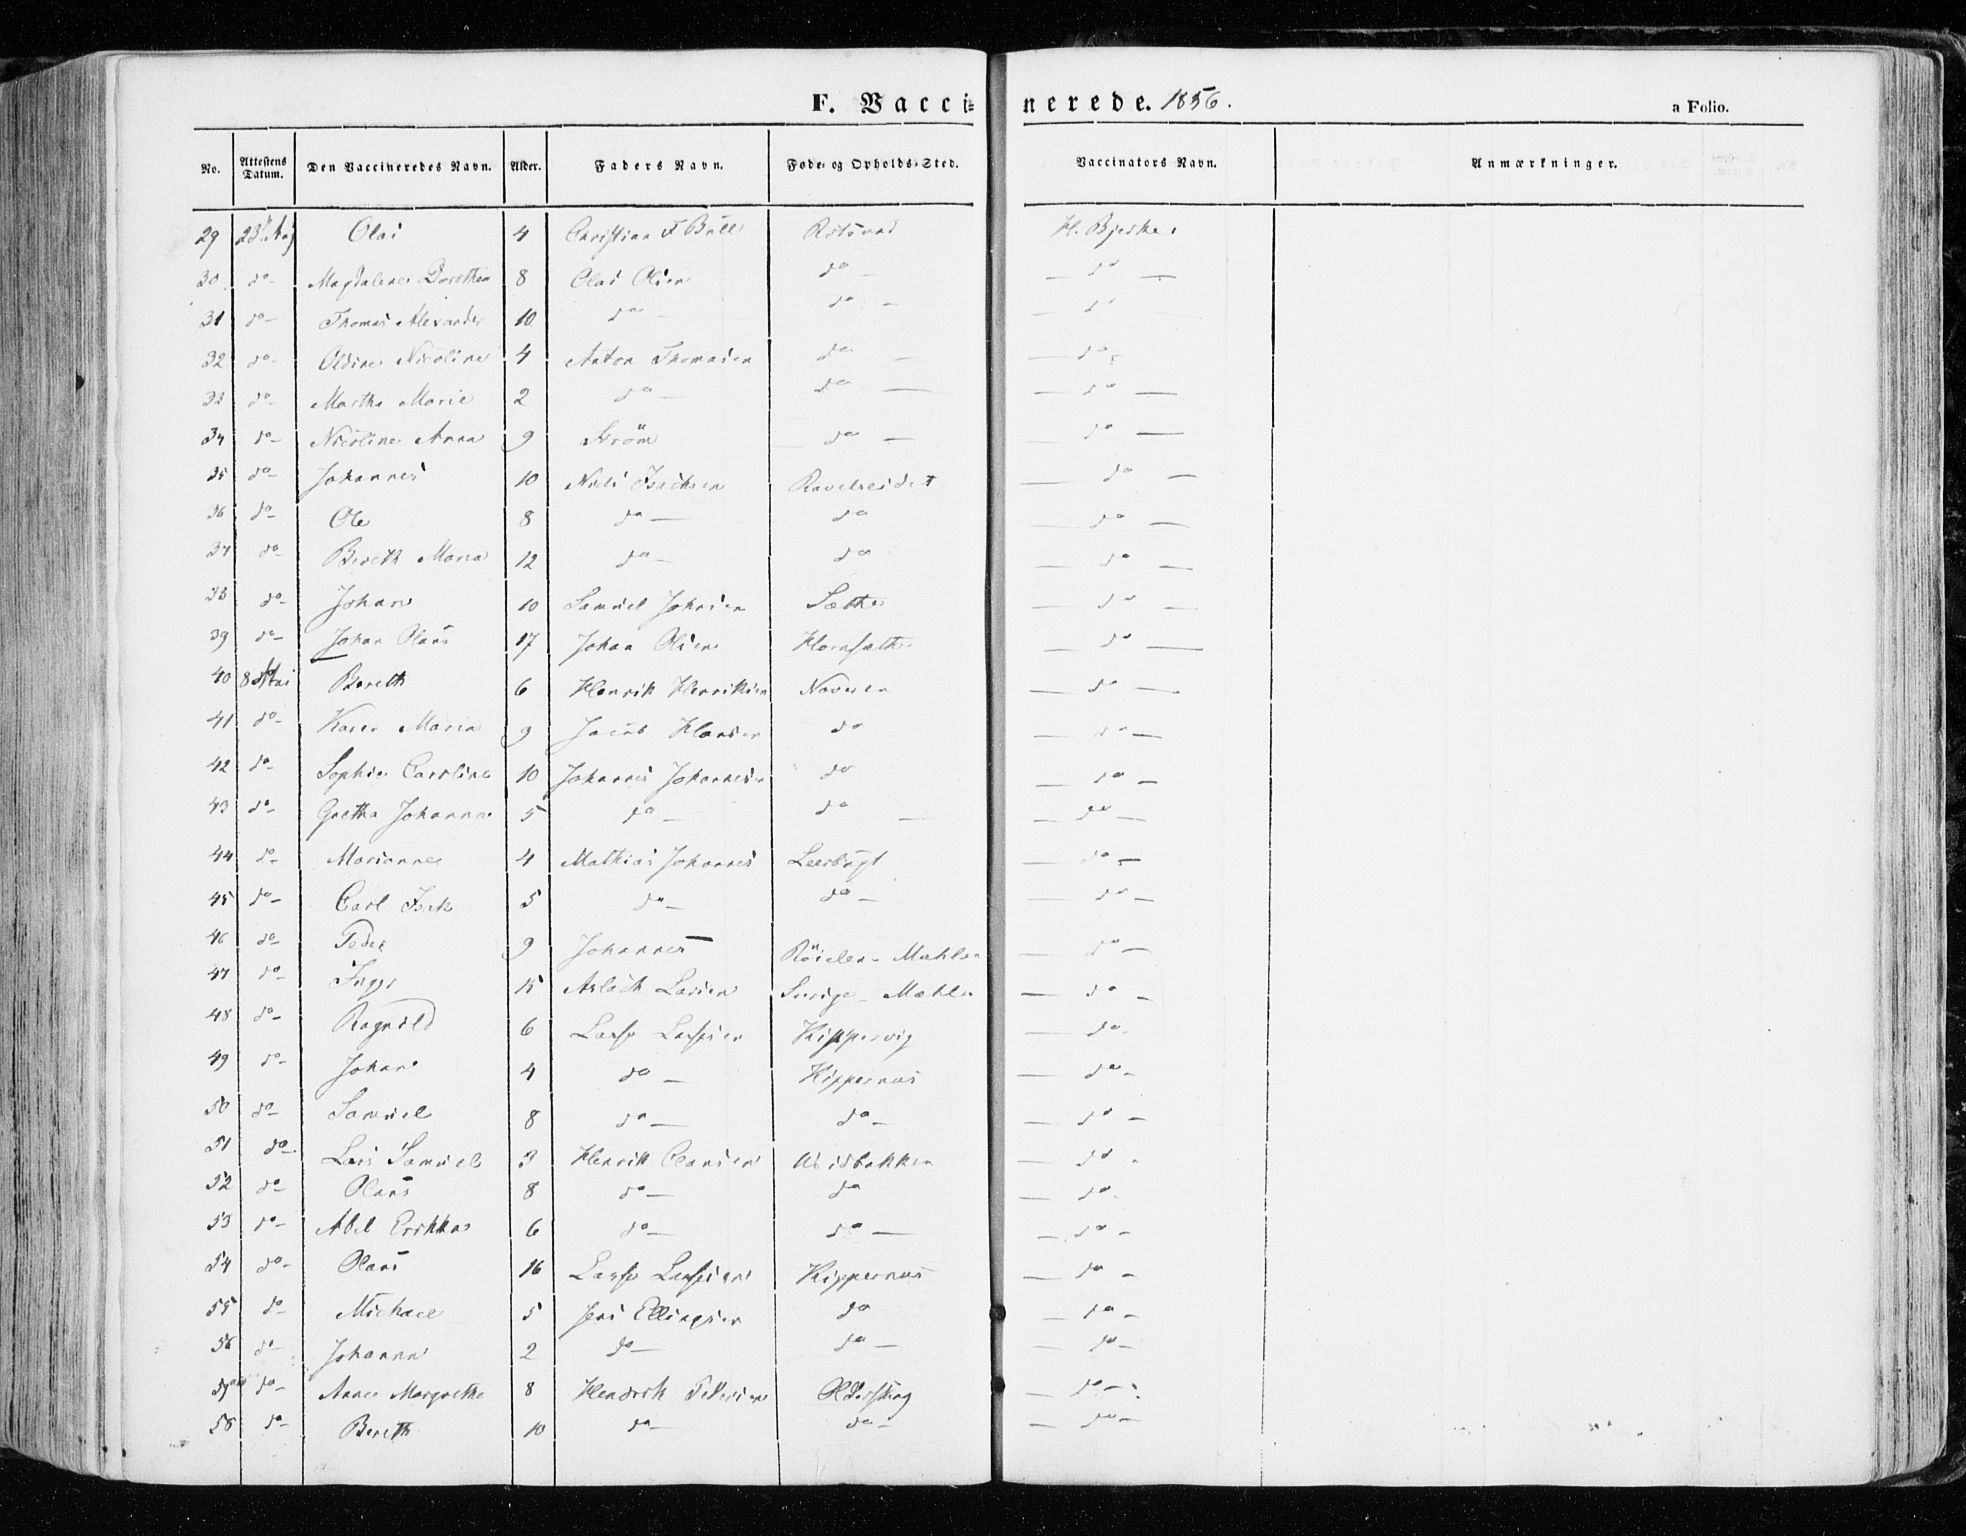 F. Vaccinerede. 1856.
a Folio.
No. Attestens Datum. Den Vaccineredes Navn. Alder. Faders Navn. Føde- og Opholds-Sted. Vaccinators Navn. Anmærkninger.
29 23 Maj Olai 4 Christian F Bull
30 do- Magdalene Dorothea 8 Olai Olsen do - - do -
31 do- Thomas Alexander 10 do - do - - do
32 do- Oldine Nicoline 4 Anton Thomasen do - - do
33 do- Martha Marie 2 do - do - - do -
34 do- Nicoline Anna 9 Strøm do - - do -
35 do- Johannes 10 Niels Isachsen - do -
36 do- Ole 8 do - do - do -
37 do- Bereth Maria 12 do - do - do -
38 do- Johan 10 Samuel Johnsen Sæther - do -
39 do- Johan Olaus 17 Johan Olsen - do -
40 8 Bereth 6 Henrik Henriksen - do -
41 do- Karen Maria 9 Jacob Hansen do - do -
42 do- Sophie Caroline 10 Johannes Johannesen do - do -
43 do- Grethe Johanna 5 do - do - - do -
44 do- Marianne 4 Mathias Johannes Leerbugt - do -
45 do- Carl Isak 5 do - do - - do -
46 do- Peder 9 Johannes - do -
47 do- Inger 15 Aslach Larsen - do -
48 do- Ragnild 6 Kippervig - do -
49 do- Johan 4 do - Kippernæs - do -
50 do- Samuel 8 do - do - - do -
51 do- Lars Samuel 3 Henrik - do -
52 do- Olaus 8 do - do - do -
53 do- Abel Erikka 6 do - do - - do -
54 do- Olaus 16 Kippernæs - do -
55 do- Michael 5 Jens Ellingsen do - do -
56 do- Johanna 2 do - do - - do -
57 do- Anne Margrethe 8 Hendrik Pedersen Olderskog - do -
58 do- Bereth 10 do - do - - do -